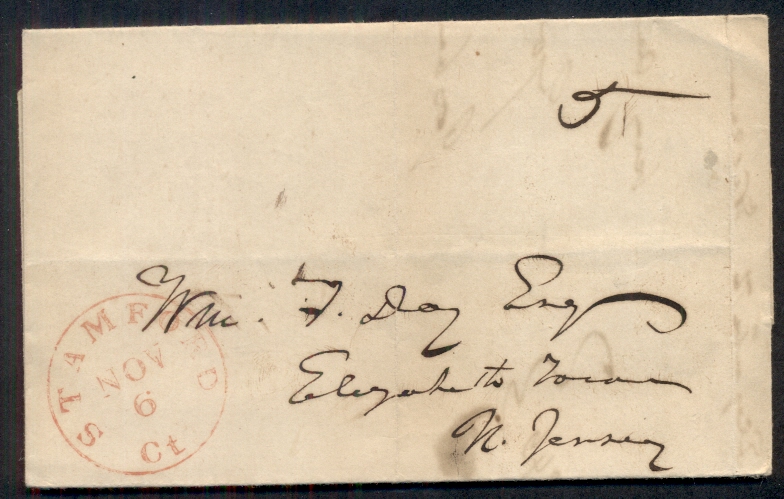 5
Wm. F. Day Esq
Elizabeth Town
N. Jersey
STAMFORD
NOV
6
Ct